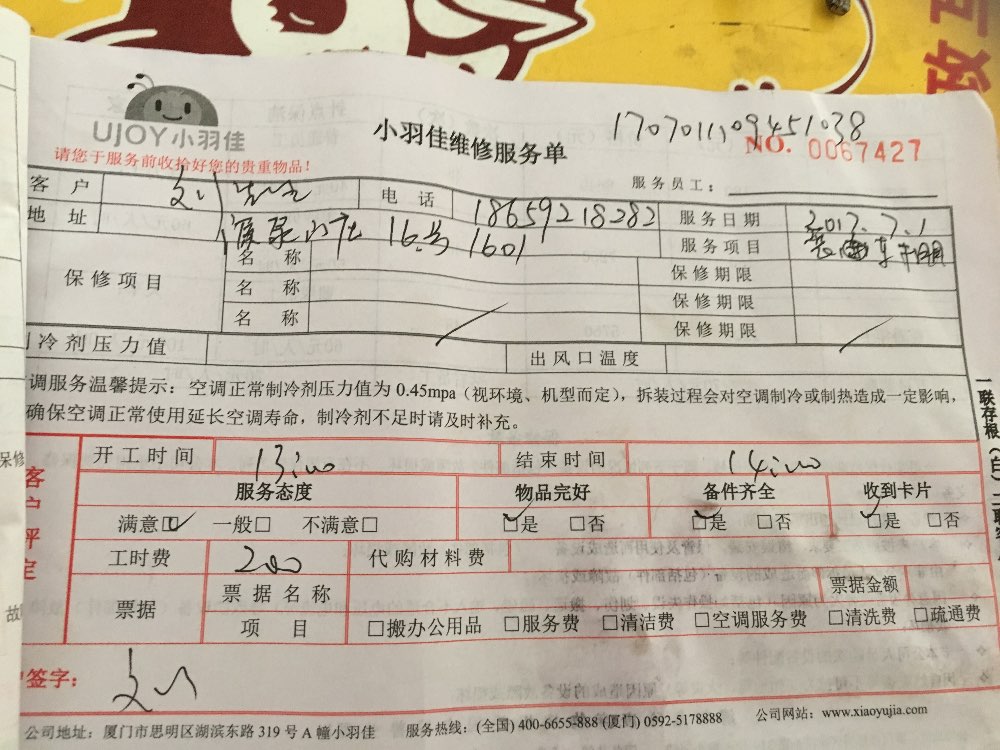 UJOY小羽佳
小羽佳维修服务单
17070111,09451038
NO. 0067427
请您于服务前收拾好您的贵重物品!
服务员工:
客 户
电 话 18659218282 服务日期 2017.7.1
地 址 16号1601 服务项目
保修项目
名 称 保修期限
名 称 保修期限
名 称 保修期限
冷剂压力值 出风口温度
调服务温馨提示:空调正常制冷剂压力值为0.45mpa(视环境、机型而定),拆装过程会对空调制冷或制热造成一定影响,
确保空调正常使用延长空调寿命,制冷剂不足时请及时补充。
一联存根(白)
客户评定
开工时间 13:00 结束时间 14:00
服务态度 物品完好 备件齐全 收到卡片
满意□ 一般□ 不满意□ □是 □否 □是 □否 □是 □否
工时费 200 代购材料费
票据 票据名称 票据金额
项 目 □搬办公用品 □服务费 □清洁费 □空调服务费 □清洗费 □疏通费
签字:
公司地址:厦门市思明区湖滨东路319号A幢小羽佳 服务热线:(全国) 400-6655-888 (厦门) 0592-5178888 公司网站:www.xiaoyujia.com